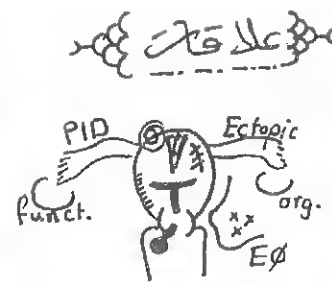 علاقات
PID Ectopic
funct. org.
EØ